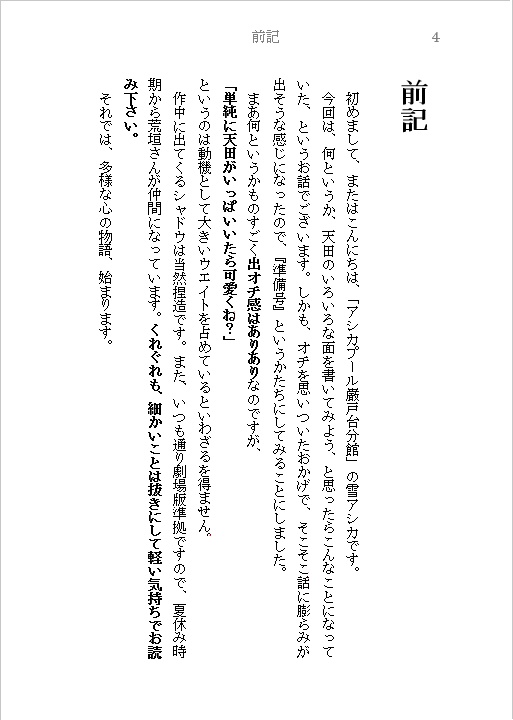 前記
4
前記
初めまして、またはこんにちは、「アシカプール巌戸台分館」の雪アシカです。
今回は、何というか、天田のいろいろな面を書いてみよう、と思ったらこんなことになって
いた、というお話でございます。しかも、オチを思いついたおかげで、そこそこ話に膨らみが
出そうな感じになったので、『準備号』というかたちにしてみることにしました。
まあ何というかものすごく出オチ感はありありなのですが、
「単純に天田がいっぱいいたら可愛くね？」
というのは動機として大きいウエイトを占めているといわざるを得ません。
作中に出てくるシャドウは当然捏造です。また、いつも通り劇場版準拠ですので、夏休み時
期から荒垣さんが仲間になっています。くれぐれも、細かいことは抜きにして軽い気持ちでお読
み下さい。
それでは、多様な心の物語、始まります。